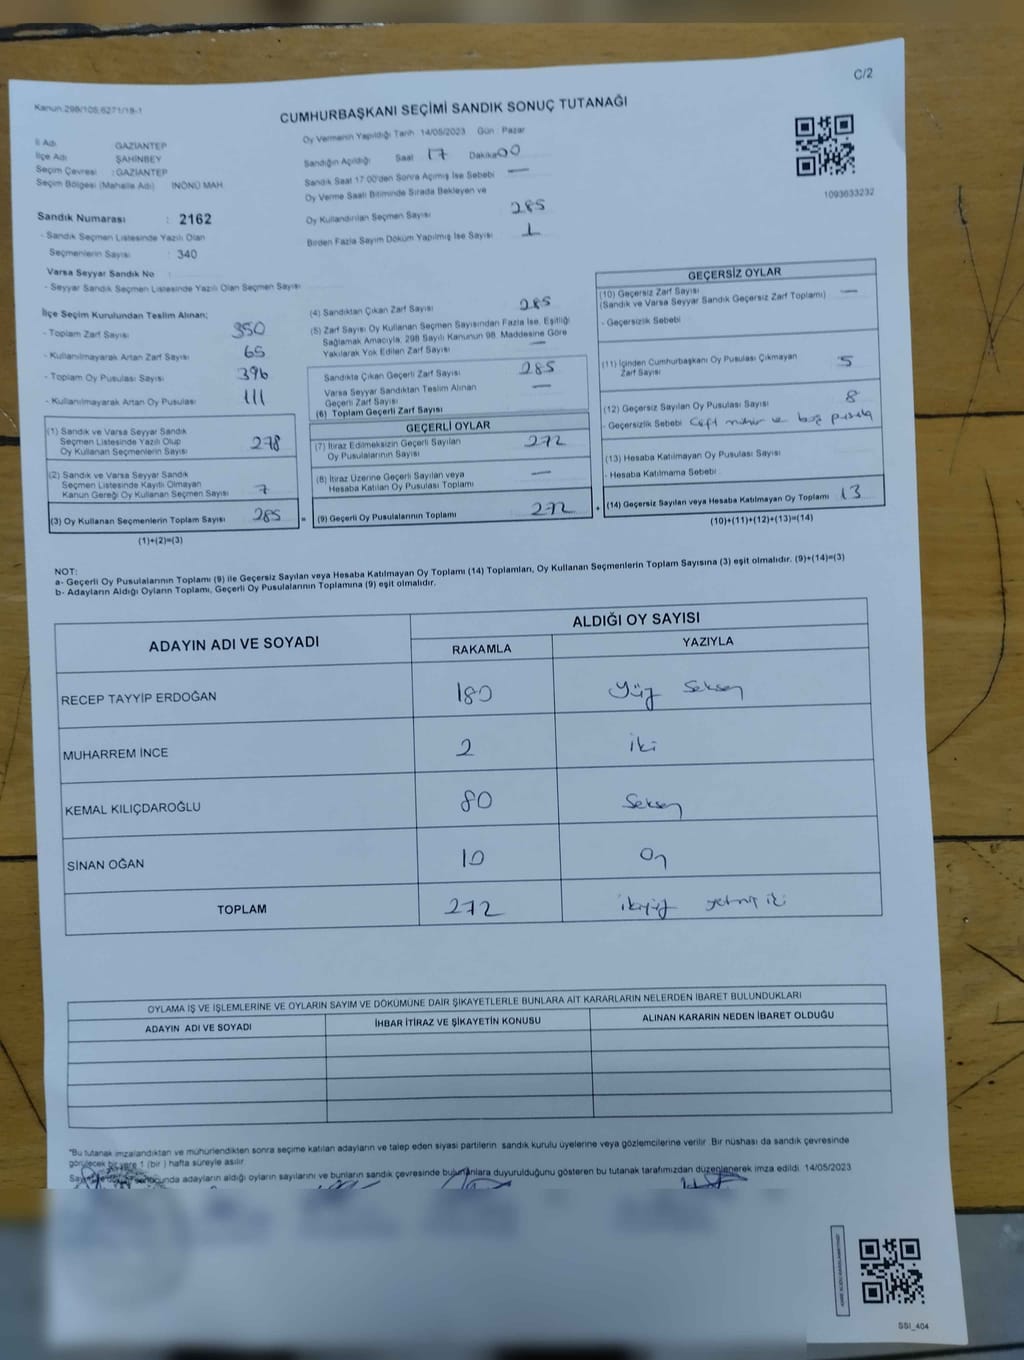 C/2
Kanun:298/105;6271/18-1
CUMHURBAŞKANI SEÇİMİ SANDIK SONUÇ TUTANAĞI
İl Adı GAZİANTEP
İlçe Adı ŞAHİNBEY
Seçim Çevresi : GAZİANTEP
Seçim Bölgesi (Mahalle Adı) İNÖNÜ MAH.
Oy Vermenin Yapıldığı Tarih 14/05/2023 Gün : Pazar
Sandığın Açıldığı Saat 17 Dakika 00
Sandık Saat 17:00'den Sonra Açımış İse Sebebi —
Oy Verme Saati Bitiminde Sırada Bekleyen ve
Oy Kullandırılan Seçmen Sayısı 285
Birden Fazla Sayım Döküm Yapılmış İse Sayısı 1
1093633232
Sandık Numarası : 2162
- Sandık Seçmen Listesinde Yazılı Olan
Seçmenlerin Sayısı : 340
Varsa Seyyar Sandık No :
- Seyyar Sandık Seçmen Listesinde Yazılı Olan Seçmen Sayısı
İlçe Seçim Kurulundan Teslim Alınan;
- Toplam Zarf Sayısı 350
- Kullanılmayarak Artan Zarf Sayısı 65
- Toplam Oy Pusulası Sayısı 396
- Kullanılmayarak Artan Oy Pusulası 111
(1) Sandık ve Varsa Seyyar Sandık
Seçmen Listesinde Yazılı Olup
Oy Kullanan Seçmenlerin Sayısı 278
(2) Sandık ve Varsa Seyyar Sandık
Seçmen Listesinde Kayıtlı Olmayan
Kanun Gereği Oy Kullanan Seçmen Sayısı 7
(3) Oy Kullanan Seçmenlerin Toplam Sayısı 285
(1)+(2)=(3)
(4) Sandıktan Çıkan Zarf Sayısı 285
(5) Zarf Sayısı Oy Kullanan Seçmen Sayısından Fazla İse, Eşitliği
Sağlamak Amacıyla, 298 Sayılı Kanunun 98. Maddesine Göre
Yakılarak Yok Edilen Zarf Sayısı —
Sandıkta Çıkan Geçerli Zarf Sayısı 285
Varsa Seyyar Sandıktan Teslim Alınan
Geçerli Zarf Sayısı —
(6) Toplam Geçerli Zarf Sayısı
GEÇERLİ OYLAR
(7) İtiraz Edilmeksizin Geçerli Sayılan
Oy Pusulalarının Sayısı 272
(8) İtiraz Üzerine Geçerli Sayılan veya
Hesaba Katılan Oy Pusulası Toplamı —
= (9) Geçerli Oy Pusulalarının Toplamı 272
GEÇERSİZ OYLAR
(10) Geçersiz Zarf Sayısı —
(Sandık ve Varsa Seyyar Sandık Geçersiz Zarf Toplamı)
- Geçersizlik Sebebi
(11) İçinden Cumhurbaşkanı Oy Pusulası Çıkmayan
Zarf Sayısı 5
(12) Geçersiz Sayılan Oy Pusulası Sayısı 8
- Geçersizlik Sebebi Çift mühür ve boş pusula
(13) Hesaba Katılmayan Oy Pusulası Sayısı
- Hesaba Katılmama Sebebi
+ (14) Geçersiz Sayılan veya Hesaba Katılmayan Oy Toplamı 13
(10)+(11)+(12)+(13)=(14)
NOT:
a- Geçerli Oy Pusulalarının Toplamı (9) ile Geçersiz Sayılan veya Hesaba Katılmayan Oy Toplamı (14) Toplamları, Oy Kullanan Seçmenlerin Toplam Sayısına (3) eşit olmalıdır. (9)+(14)=(3)
b- Adayların Aldığı Oyların Toplamı, Geçerli Oy Pusulalarının Toplamına (9) eşit olmalıdır.
ADAYIN ADI VE SOYADI ALDIĞI OY SAYISI
RAKAMLA YAZIYLA
RECEP TAYYİP ERDOĞAN 180 Yüz Seksen
MUHARREM İNCE 2 iki
KEMAL KILIÇDAROĞLU 80 Seksen
SİNAN OĞAN 10 On
TOPLAM 272 ikiyüz yetmiş iki
OYLAMA İŞ VE İŞLEMLERİNE VE OYLARIN SAYIM VE DÖKÜMÜNE DAİR ŞİKAYETLERLE BUNLARA AİT KARARLARIN NELERDEN İBARET BULUNDUKLARI
ADAYIN ADI VE SOYADI İHBAR İTİRAZ VE ŞİKAYETİN KONUSU ALINAN KARARIN NEDEN İBARET OLDUĞU
"Bu tutanak imzalandıktan ve mühürlendikten sonra seçime katılan adayların ve talep eden siyasi partilerin sandık kurulu üyelerine veya gözlemcilerine verilir. Bir nüshası da sandık çevresinde
görülecek bir yere 1 (bir) hafta süreyle asılır.
adayların aldığı oyların sayılarını ve bunların sandık çevresinde bulunanlara duyurulduğunu gösteren bu tutanak tarafımızdan düzenlenerek imza edildi. 14/05/2023
SSI_404